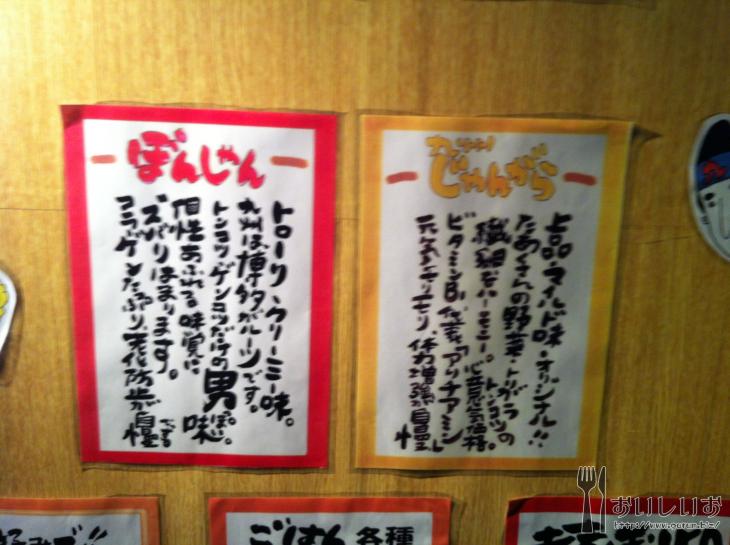 ぼんしゃん
トローリ、クリーミー味。
九州は博多がルーツです。
トンコツ、ゲンコツだけの男っぽい味。
個性あふれる味覚に
ズバリはまります。
コラーゲンたっぷり、老化防止が自慢
九州
じゃんがら
上品・マイルド味・オリジナル!!
たあくさんの野菜・トリガラ
トンコツの
繊細なハーモニー。心意気価格。
ビタミンB1代表「アリナアミン」
元気モリモリ、体力増強が自慢
ごはん 各種
おいしいお
http://www.ourun.biz/